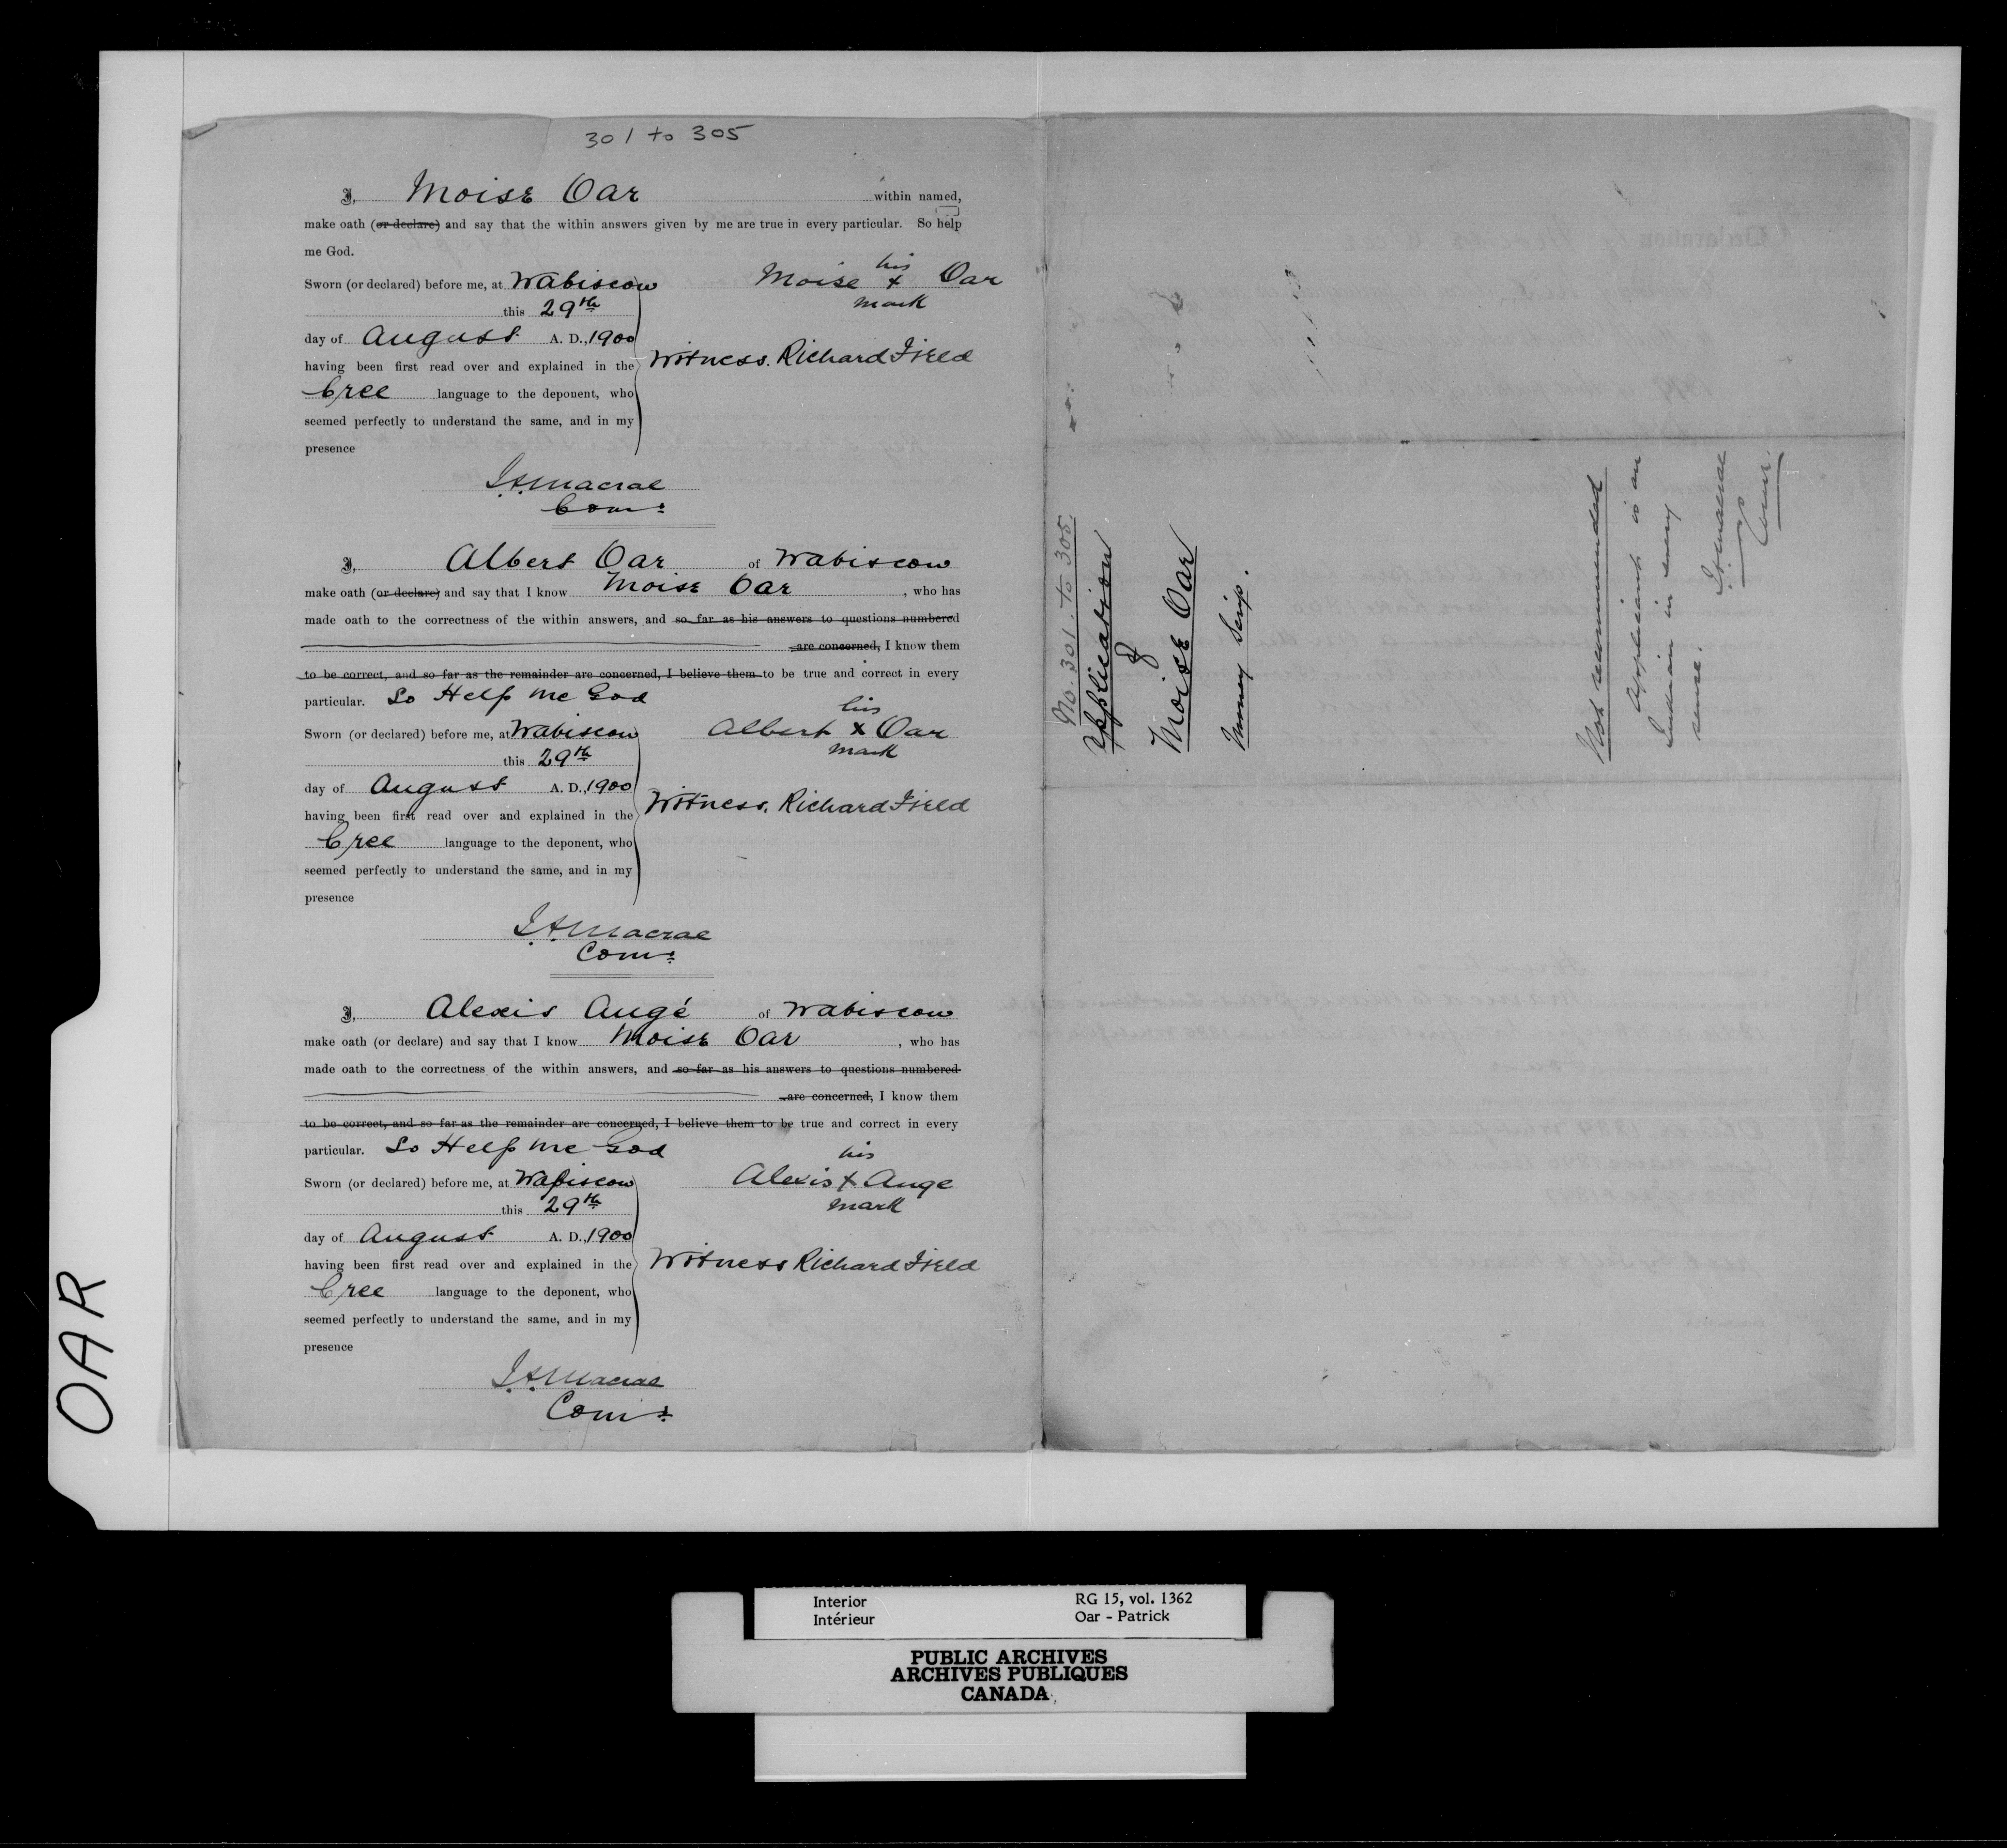 301 to 305
I, Moise Oar within named,
make oath (or declare) and say that the within answers given by me are true in every particular. So help
me God.
Sworn (or declared) before me, at Wabiscow
this 29th
day of August A. D., 1900
having been first read over and explained in the
Cree language to the deponent, who
seemed perfectly to understand the same, and in my
presence
his
Moise x Oar
mark
Witness. Richard Field
J.A. Macrae
Comr.
I, Albert Oar of Wabiscow
make oath (or declare) and say that I know Moise Oar, who has
made oath to the correctness of the within answers, and so far as his answers to questions numbered
are concerned, I know them
to be correct, and so far as the remainder are concerned, I believe them to be true and correct in every
particular. So Help me God
Sworn (or declared) before me, at Wabiscow
this 29th
day of August A. D., 1900
having been first read over and explained in the
Cree language to the deponent, who
seemed perfectly to understand the same, and in my
presence
his
Albert x Oar
mark
Witness. Richard Field
J.A. Macrae
Comr.
I, Alexis Augé of Wabiscow
make oath (or declare) and say that I know Moise Oar, who has
made oath to the correctness of the within answers, and so far as his answers to questions numbered
are concerned, I know them
to be correct, and so far as the remainder are concerned, I believe them to be true and correct in every
particular. So Help me God
Sworn (or declared) before me, at Wabiscow
this 29th
day of August A. D., 1900
having been first read over and explained in the
Cree language to the deponent, who
seemed perfectly to understand the same, and in my
presence
his
Alexis x Auge
mark
Witness Richard Field
J.A. Macrae
Comr.
No. 301. to 305.
Application
of
Moise Oar
Money Scrip.
Not recommended
Applicant is an
Indian in every
sense.
J.A. Macrae
Comr.
OAR
Interior
Intérieur
RG 15, vol. 1362
Oar - Patrick
PUBLIC ARCHIVES
ARCHIVES PUBLIQUES
CANADA